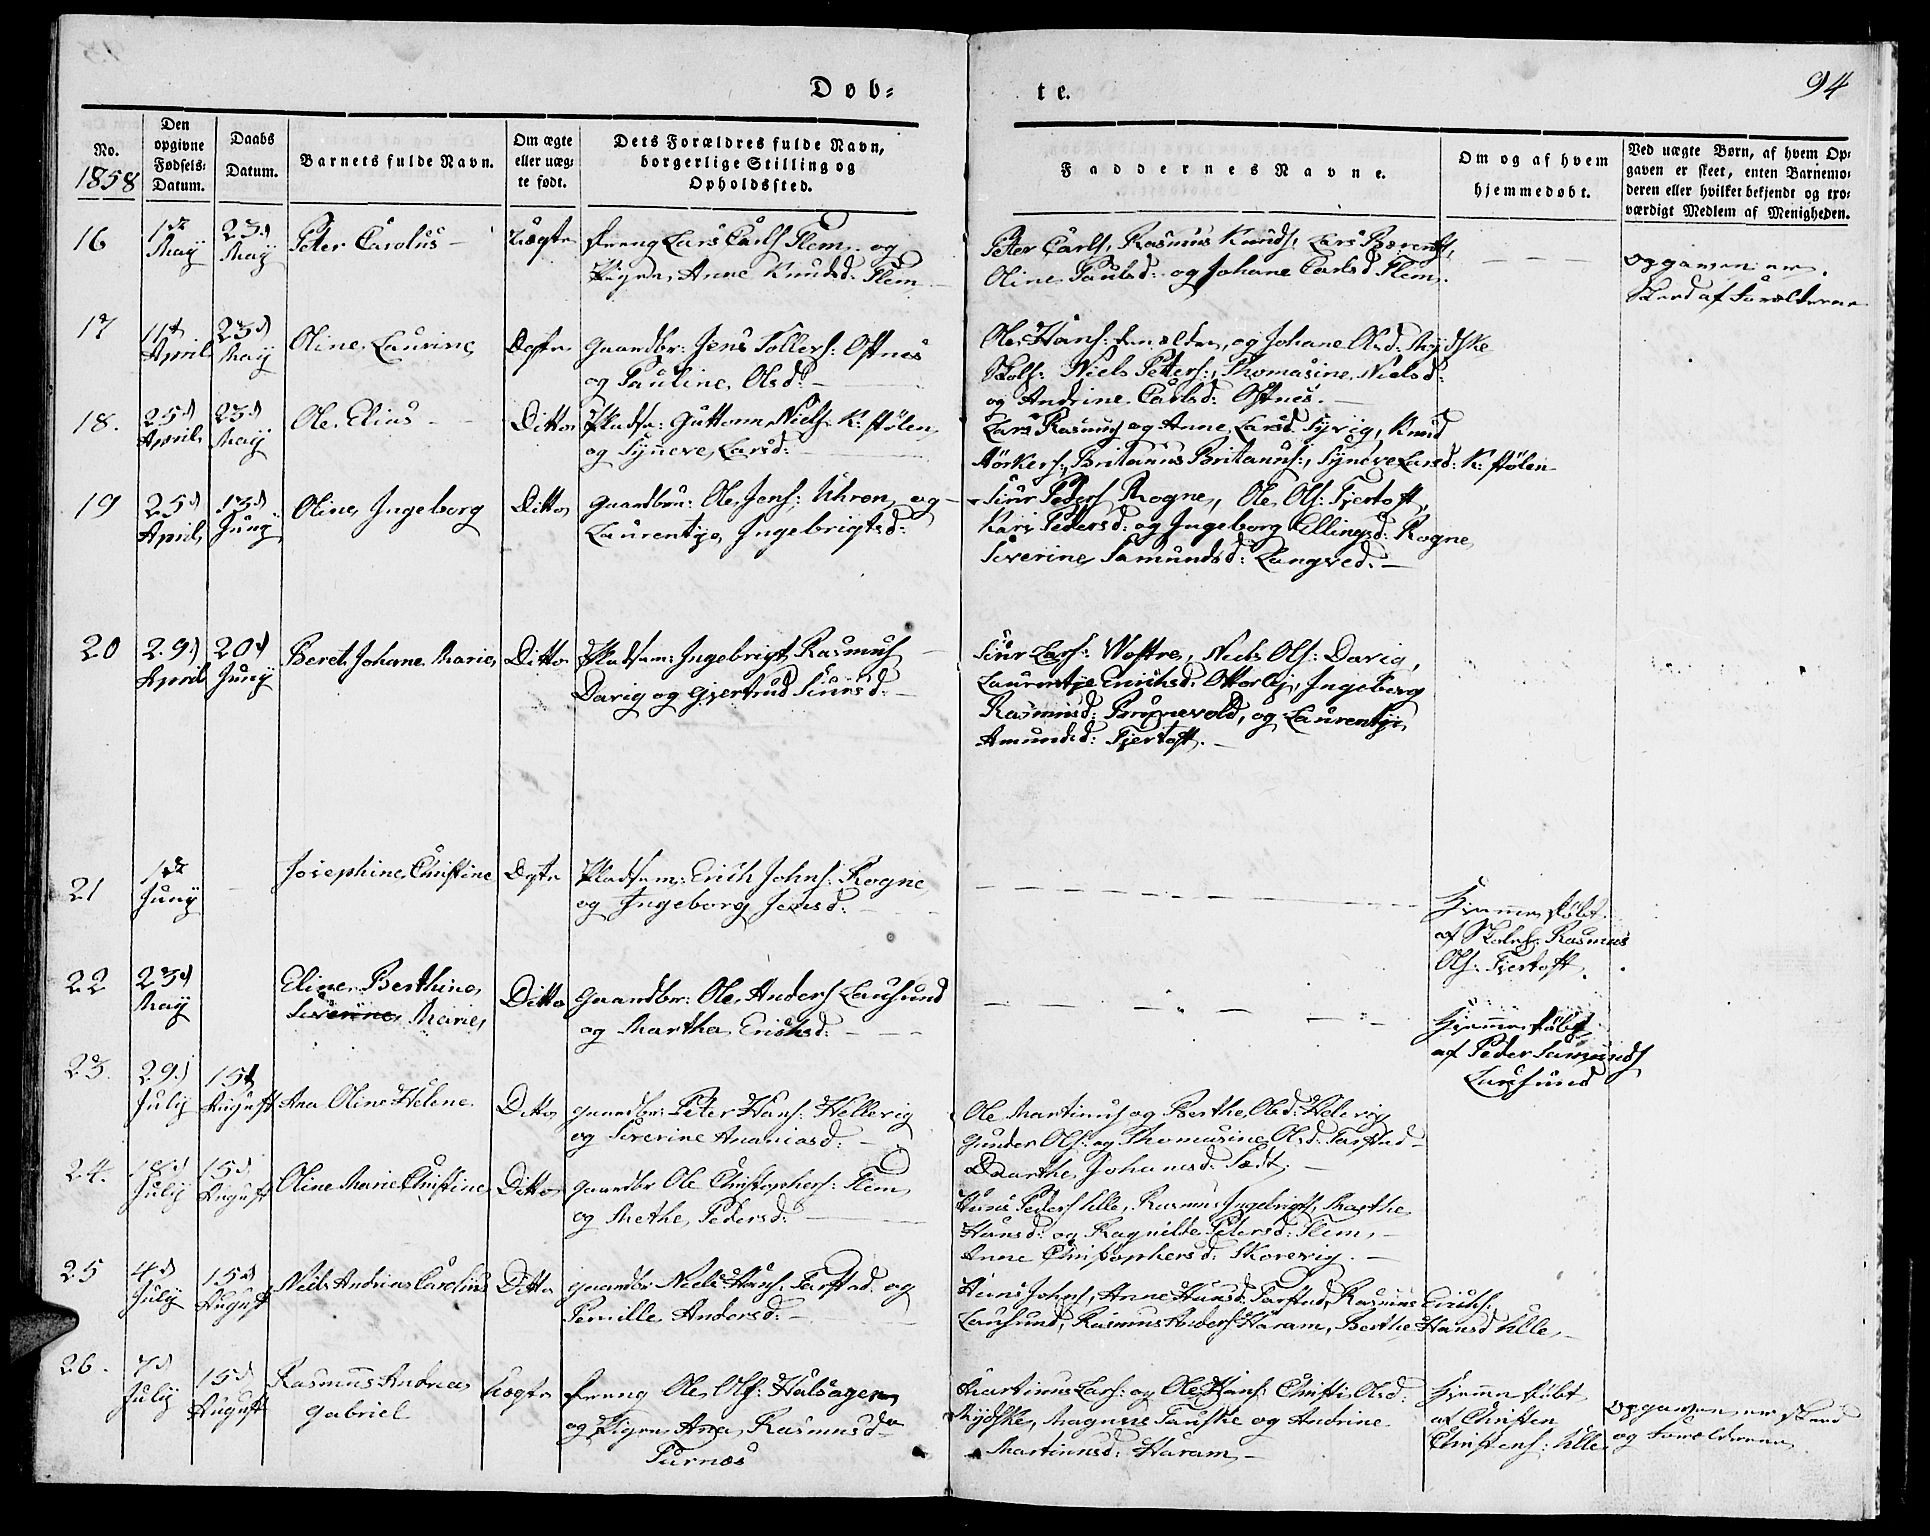 Døb-
te.
94
No.
1858
Den
opgivne
Fødsels-
Datum.
Daabs
Datum.
Barnets fulde Navn.
Om ægte
eller uæg-
te født.
Dets Forældres fulde Navn,
borgerlige Stilling og
Opholdssted.
Faddernes Navne.
Om og af hvem
hjemmedøbt.
Ved uægte Børn, af hvem Op-
gaven er skeet, enten Barnemo-
deren eller hvilket bekjendt og tro-
værdigt Medlem af Menigheden.
16
1ste
May
23d
May
Peter Carolus
Uægte
Dreng Lars Carls Flem og
Pigen Anne Knudsd: Flem
Peter Carls, Rasmus Knuds, Lars Berents,
Oline Paulsd: og Johane Carlsd Flem.
Opgaven er
skeed af Forældrene
17
11te
April
23d
May
Oline Laurine
Ægte
Gaardbr: Jens Tollefs: Ostnes
og Pauline Olsd:
Ole Hans: den ældre, og Johane Olsd:
Niels Petters:, Thomasine Nielsd:
og Andrine Carlsd: Ostnes.
18.
25d
April
23d
May
Ole Elias
Ditto
Pladsm: Guttorm Niels K: stølen
og Synneve Larsd:
Lars Rasmus og Anne Larsd Syvig, Knud
Britanus Britanus:, Synneve Larsd: K: stølen
19
25d
April
13d
Juny
Oline Ingeborg
Ditto
Gaardbru: Ole Jens: Uhren og
Laurentje Ingebrigtsd:
Siur Peders Rogne, Ole Ols: Fjertoft,
Kari Pedersd: og Ingeborg Ellingsd: Rogne
Severine Samundsd: Longved.
20
29d
April
20d
Juny
Beret Johane Marie
Ditto
Pladsm: Ingebrigt Rasmus
Davig og Gjertrud Siursd:
Siur Lars: Wostre, Niels Ols: Davig,
Laurentje Erichsd: Otterlej, Ingeborg
Rasmusd: Brunevold, og Laurentje
Amundsd: Fjertoft.
21
1ste
Juny
Josephine Christine
Ægte
Pladsm: Erich Johns: Rogne
og Ingeborg Jensd:
Hjemmedøbt
af Rasmus
Ols: Fjertoft
22
23d
May
Eline Berthine
Severine Marie
Ditto
Gaardbr: Ole Anders Lausund
og Martha Erichsd:
Hjemmedøbt
af Peder Samunds
Lausund
23.
29d
July
15d
August
Ana Oline Helene
Ditto
Gaardbr: Peter Hans: Hellevig
og Severine Ananiasd:
Ole Martinus og Berthe Olsd: Helevig
Gunder Ols: og Thomasine Olsd: Farstad
Marthe Johansd: Sædt.
24.
18d
July
15d
August
Oline Marie Christine
Ditto
Gaardbr Ole Christophers: Flem
og Methe Pedersd:
Hans Peders Ulle, Rasmus Ingebrigts, Marthe
Hansd: og Ragnilde Petersd: Flem,
Anne Christophersd: Skorevig.
25
4d
July
15d
August
Niels Andrias Carolius
Ditto
Gaardbr Niels Hans: Farstad og
Pernille Andersd:
Hans Johns, Anne Hansd: Farstad, Rasmus Erichs:
Lausund, Rasmus Anders Haram, Berthe Hansd Ulle,
26.
7d
July
15d
August
Rasmus Andreas
Gabriel
Uægte
Dreng Ole Ols: Halsagen
og Pigen Ana Rasmusd
Turnæs
Martinus Lars: og Ole Hans: Christi Olsd:
Magnus og Andrine
Martinusd: Haram
Hjemmedøbt
af Christen
Christens: Ulle
Opgaven er skeed
og Forældrene